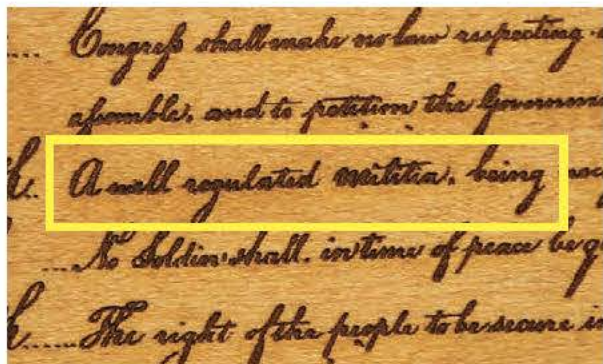 Congreſs shall make no law respecting
aſsemble, and to petition the Governme
A well regulated militia, being nec
No Soldier shall, in time of peace be q
The right of the people to be secure in